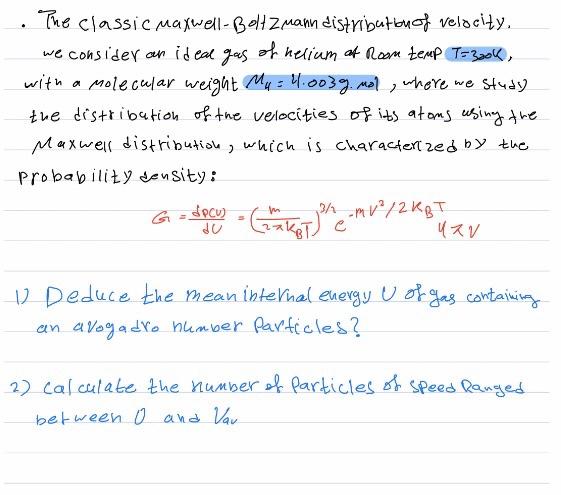 . The classic Maxwell-Boltzmann distribution of velocity.
we consider an ideal gas of helium at Room temp T=300K,
with a molecular weight M4 = 4.003g.mol , where we study
the distribution of the velocities of its atoms using the
Maxwell distribution, which is characterized by the
probability density:
G = dP(v)/dv = (m/2πK_BT)^3/2 e^-mv²/2K_BT 4πv
1) Deduce the mean internal energy U of gas containing
an avogadro number Particles?
2) calculate the number of Particles of speed Ranged
between 0 and Vav